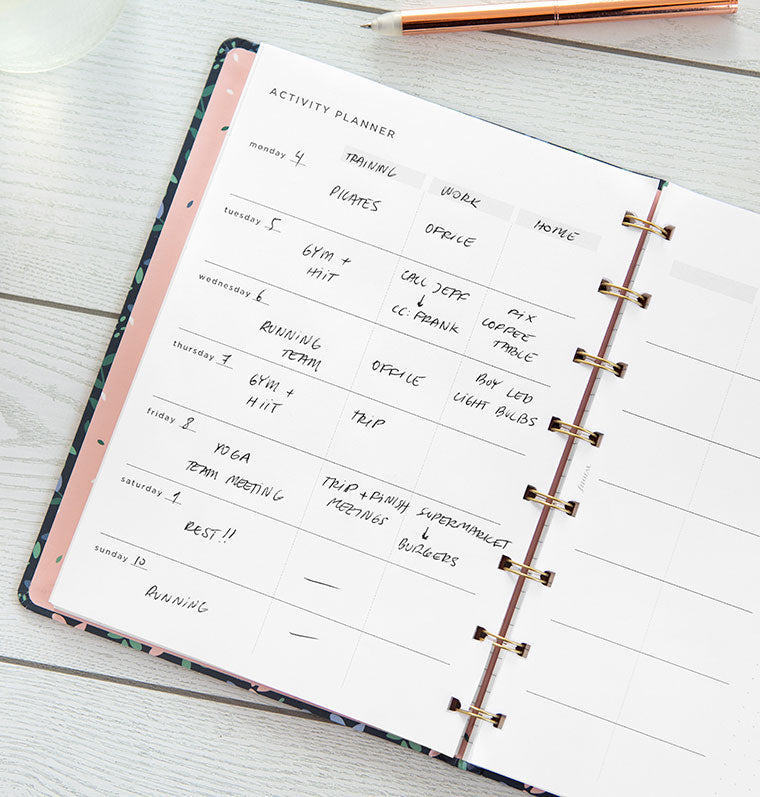 ACTIVITY PLANNER
monday 4
TRAINING
WORK
HOME
PILATES
OFFICE
tuesday 5
GYM +
HiiT
CALL JEFF
↓
CC: FRANK
FIX
COFFEE
TABLE
wednesday 6
RUNNING
TEAM
OFFICE
BUY LED
LIGHT BULBS
thursday 7
GYM +
HiiT
TRIP
friday 8
YOGA
TEAM MEETING
TRIP + FINISH
MEETINGS
SUPERMARKET
↓
BURGERS
saturday 9
REST!!
—
sunday 10
RUNNING
—